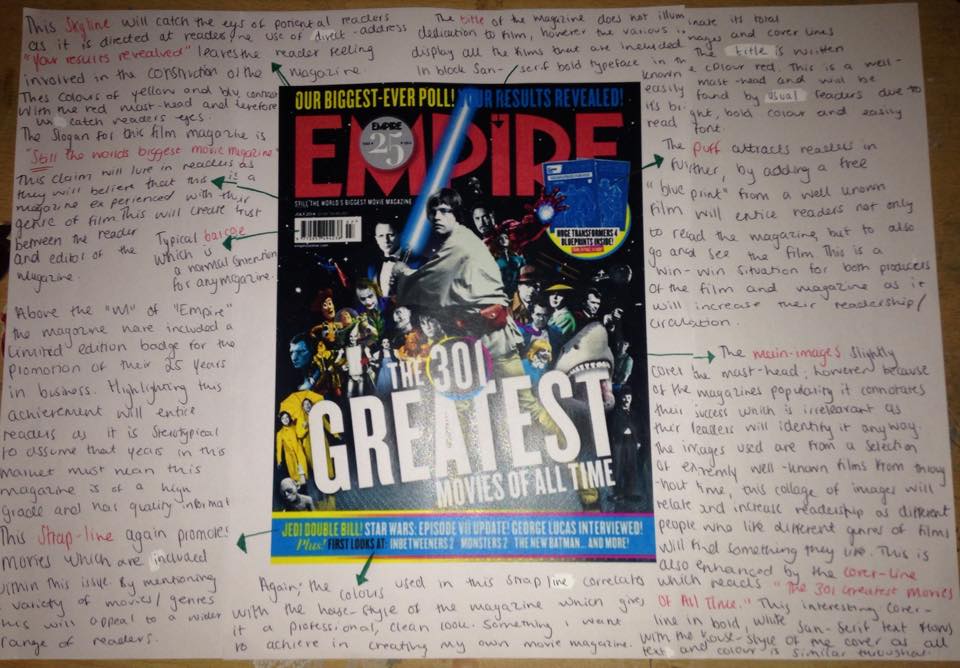 This Skyline will catch the eyes of potential readers
as it is directed at readers. The use of direct-address
"Your results revealved" leaves the reader feeling
involved in the construction of the
magazine.
Thes colours of yellow and blu contrast
with the red mast-head and therefore
will catch readers eyes.
The Slogan for this film magazine is
"Still the worlds biggest movie magazine"
This claim will lure in readers as
they will believe that this is a
magazine experienced with this
genre of film. This will create trust
between the reader
and editor of the
magazine.
Typical barcode
which is
a normal convention
for any magazine.
Above the "M" of "Empire"
the magazine have included a
limited edition badge for the
promotion of their 25 years
in business. Highlighting this
achievement will entice
readers as it is sterotypical
to assume that years in this
market must mean this
magazine is of a high
grade and has quality informat
This Strap-line again promotes
movies which are
within this issue. By mentioning
variety of movies/genres
this will appeal to a wider
range of readers.
The title of the magazine does not illuminate its total
dedication to film, however the various images and cover lines
display all the films that are included. The title is written
In block San-serif bold typeface in the colour red. This is a well-
known mast-head and will be
easily found by usual readers due to
it's bright, bold, colour and easily
read font.
The Puff attracts readers in
further, by adding a free
"blue print" from a well known
film will entice readers not only
to read the magazine, but to also
go and see the film. This is a
win-win situation for both producers
of the film and magazine as it
will increase their readership/
circulation.
The main-images slightly
cover the mast-head; however because
of the magazines popularity it connotates
their success which is irrelevant as
their readers will identify it anyway.
The images used are from a selection
of extremly well-known films from throug
-hout time, this collage of images will
relate and increase readership as different
people who like different genres of films
will find something they like. This is
also enhanced by the cover-line
which reads "The 301 Greatest Movies
Of All Time." This interesting cover-
line in bold, white San-Serif text
with the house-style of the cover as all
text and colour is similar throughout.
Again, the colours used in this strap line correlate
with the house-style of the magazine which gives
it a professional, clean look. Something I want
to achieve in creating my own movie magazine.
OUR BIGGEST-EVER POLL! YOUR RESULTS REVEALED!
EMPIRE
EMPIRE
25
STILL THE WORLD'S BIGGEST MOVIE MAGAZINE
JULY 2014
HUGE TRANSFORMERS 4
BLUEPRINTS INSIDE!
THE 301
GREATEST
MOVIES OF ALL TIME
JEDI DOUBLE BILL! STAR WARS: EPISODE VII UPDATE! GEORGE LUCAS INTERVIEWED!
Plus! FIRST LOOKS AT: INBETWEENERS 2 MONSTERS 2 THE NEW BATMAN... AND MORE!